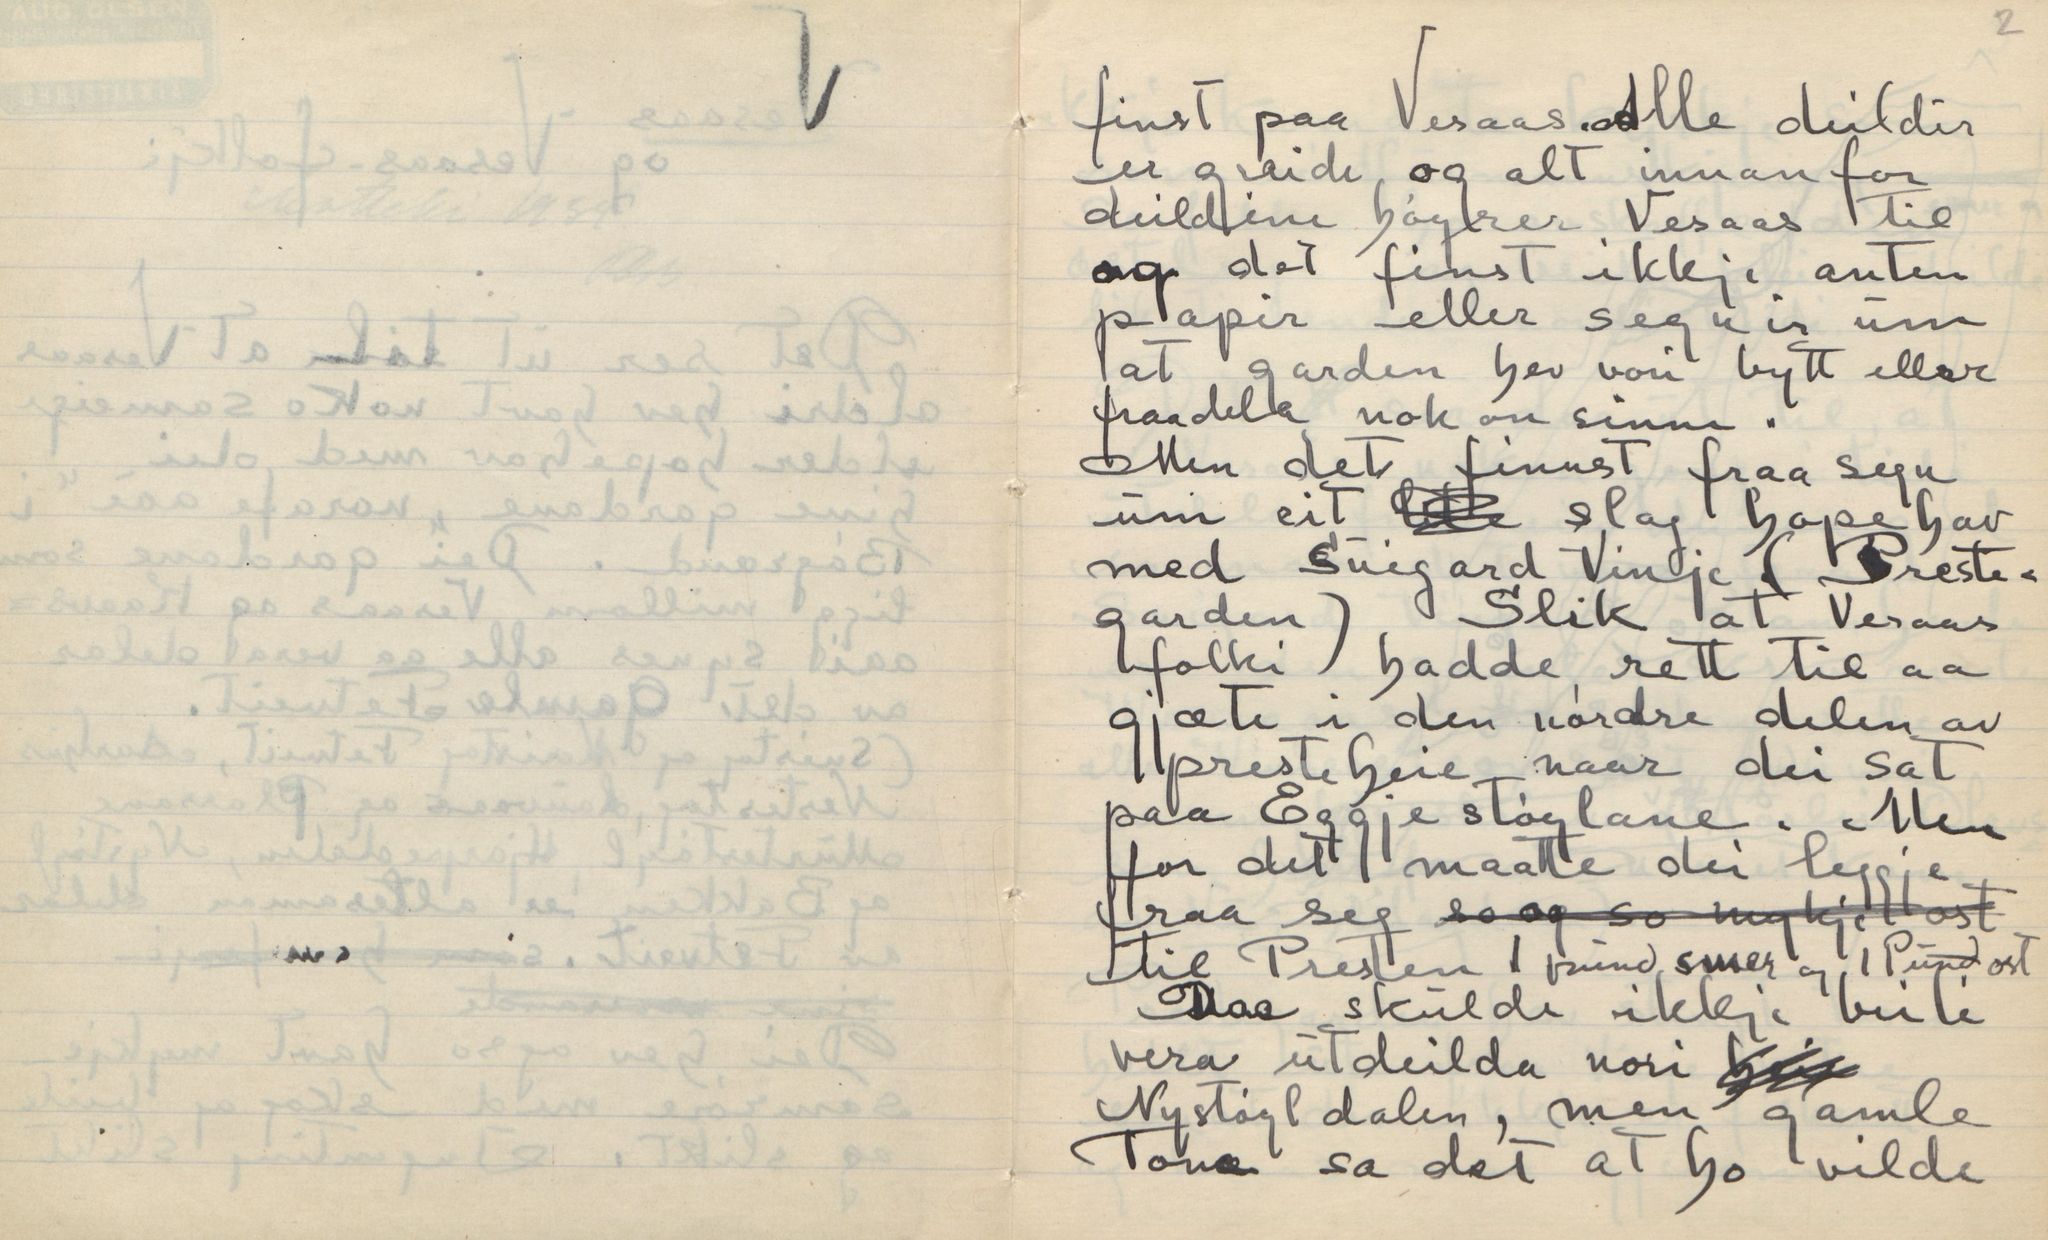 2
finst paa Vesaas. Alle deildir
er greide, og alt innanfor
deildine høyrer Vesaas til
og det finst ikkje anten
papir eller segnir um
at garden hev vori bytt eller
fraadela nokon sinne.
Men det finnst fraasegn
um eit slag hopehav
med Suigard Vinje (Preste-
garden) Slik at Vesaas
folki hadde rett til aa
gjæte i den nordre delen av
presteheie naar dei sat
paa Eggjestøylane. Men
for det maatte dei leggje
fraa seg so og so mykje ost
til Presten 1 pund smer og 1 Pund ost
Daa skulde ikkje beite
vera utdeilda nori
Nystøyldalen, men gamle
Tone sa det at ho vilde